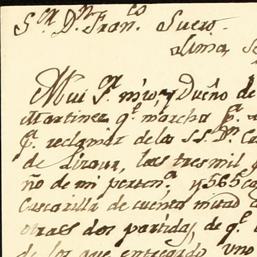 S.or D.n Fran.co Suero.
Lima, Se
Mui S.or mio y Dueño de
Martinez q.e marcha p.a
p.a reclamar de los S.S. D.n
de Lizaur, las tres mil
ño de mi perten.a y 565 ca
Cascarilla de cuenta mitad
otras dos partidas, de q.e
de los que entregado uno